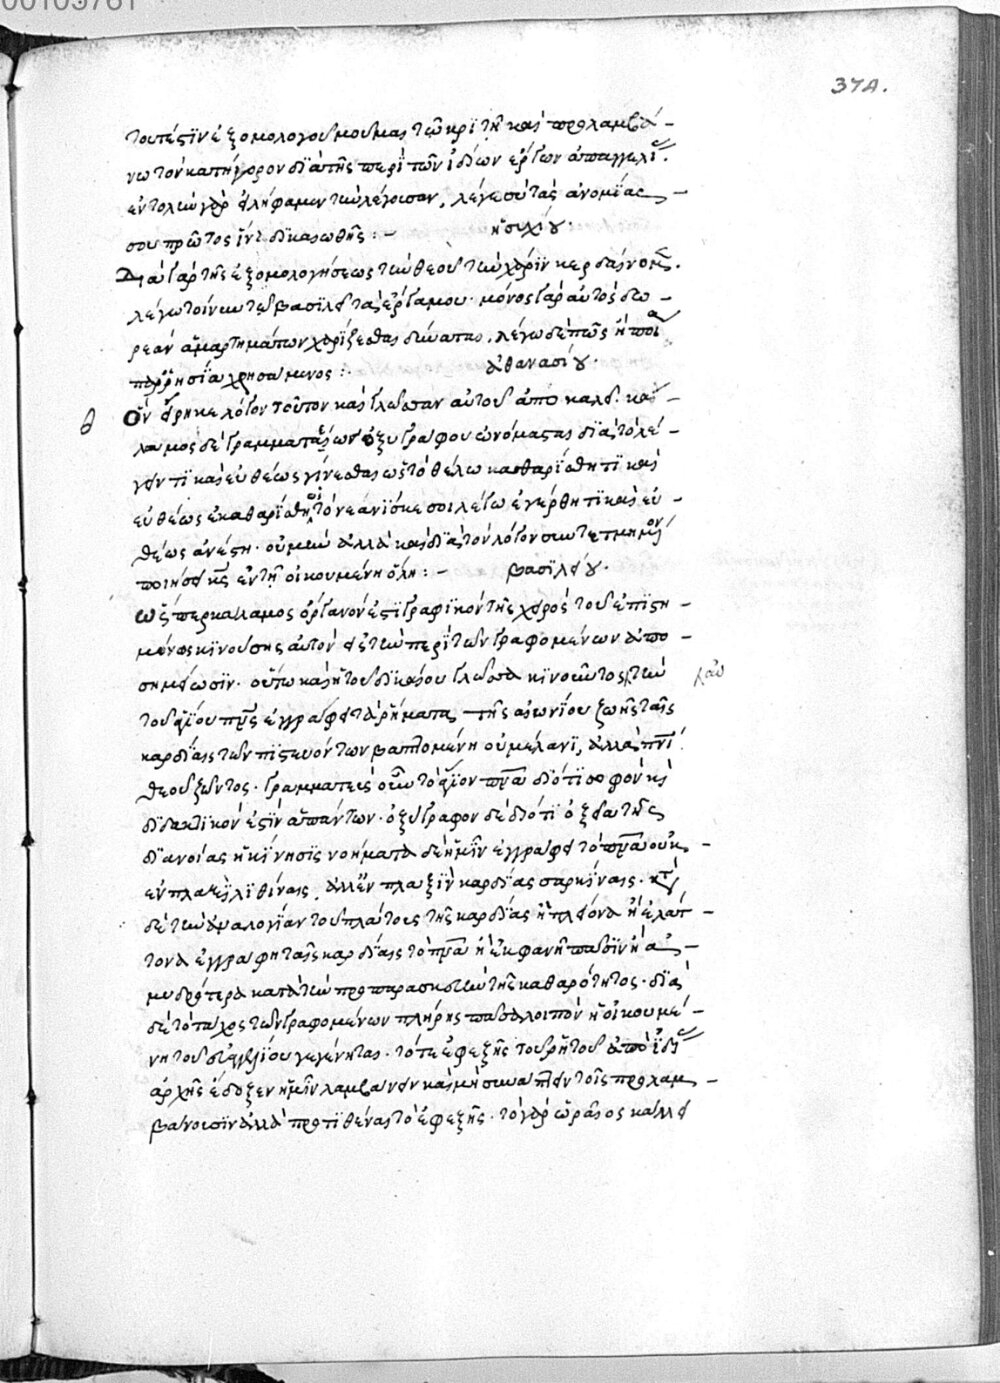 00109761
374.
τουτέστιν ἐξομολογοῦμαι τῶ κριτῆ καὶ προλαμβά-
νω τὸν κατήγορον διὰ τῆς περὶ τῶν ἰδίων ἔργων ἀπαγγελί
ἐντολὴν γὰρ εἰλήφαμεν τὴν λέγουσαν, λέγε σὺ τὰς ἀνομίας
σου πρῶτος ἵνα δικαιωθῆς:- ἡσυχίου.
Διὰ γὰρ τῆς ἐξομολογήσεως τὴν θεοῦ τὴν χάριν κερδαίνομεν.
λέγω τοίνυν τῶ βασιλεῖ τὰ ἔργα μου. μόνος γὰρ αὐτὸς δω-
ρεὰν ἁμαρτημάτων χαρίζεσθαι δύναται. λέγω δὲ πῶς ἢ ποία
παρρησία χρησάμενος:. ἀθανασίου.
θ Ὃν εἴρηκε λόγον τοῦτον καὶ γλῶσσαν αὐτοῦ ἀποκαλεῖ. κα-
λαμος δὲ γραμματέως ὀξυγράφου ὠνόμασται διὰ τὸ λέ-
γειν τι καὶ εὐθέως γίνεσθαι ὡς τὸ θέλω καθαρίσθητι καὶ
εὐθέως ἐκαθαρίσθη. τὸ νεανίσκε σοι λέγω ἐγέρθητι καὶ εὐ-
θέως ἀνέστη. οὐ μὴν ἀλλὰ καὶ διὰ τὸν λόγον συντετμημένον
ποιήσει κς ἐν τῆ οἰκουμένη ὅλη:- βασιλείου.
ὥσπερ κάλαμος ὄργανόν ἐστι γραφικὸν τῆς χειρὸς τοῦ ἐπιστη-
μόνος κινούσης αὐτὸν εἰς τὴν περὶ τῶν γραφομένων ἀπο-
σημείωσιν. οὕτω καὶ ἡ τοῦ δικαίου γλῶσσα κινοῦντος τὴν λαυ
τοῦ ἁγίου πνς ἐγγράφει τὰ ῥήματα τῆς αἰωνίου ζωῆς ταῖς
καρδίαις τῶν πιστευόντων βαπτομένη οὐ μέλανι, ἀλλὰ πνι
θεοῦ ζῶντος. γραμματεὺς οὖν τὸ ἅγιον πνα διότι σοφὸν καὶ
διδακτικόν ἐστιν ἁπάντων. ὀξυγράφον δὲ διότι ὀξεῖα τῆς
διανοίας ἡ κίνησις νοήματα δὲ ἡμῖν ἐγγράφει τὸ πνα οὐκ
ἐν πλαξὶ λιθίναις, ἀλλ' ἐν πλαξὶν καρδίας σαρκίναις. κατὰ
δὲ τὴν ἀναλογίαν τοῦ πλάτους τῆς καρδίας ἢ πλείονα ἢ ἐλάτ-
τονα ἐγγράφη ταῖς καρδίαις τὸ πνα ἢ ἐκφανῆ πᾶσιν ἢ ἀ-
μυδρότερα κατὰ τὴν προπαρασκευὴν τῆς καθαρότητος. διὰ
δὲ τὸ τάχος τῶν γραφομένων πλήρης πᾶσα λοιπὸν ἡ οἰκουμέ-
νη τοῦ εὐαγγελίου γεγένηται. τό τε ἐφεξῆς τοῦ ῥητοῦ ἀπὸ ἰδί
ἀρχῆς ἔδοξεν ἡμῖν λαμβάνειν καὶ μὴ συνάπτειν τοῖς προλαμ-
βάνουσιν ἀλλὰ προτιθέναι τὸ ἐφεξῆς. τὸ γὰρ ὡραῖος κάλλει